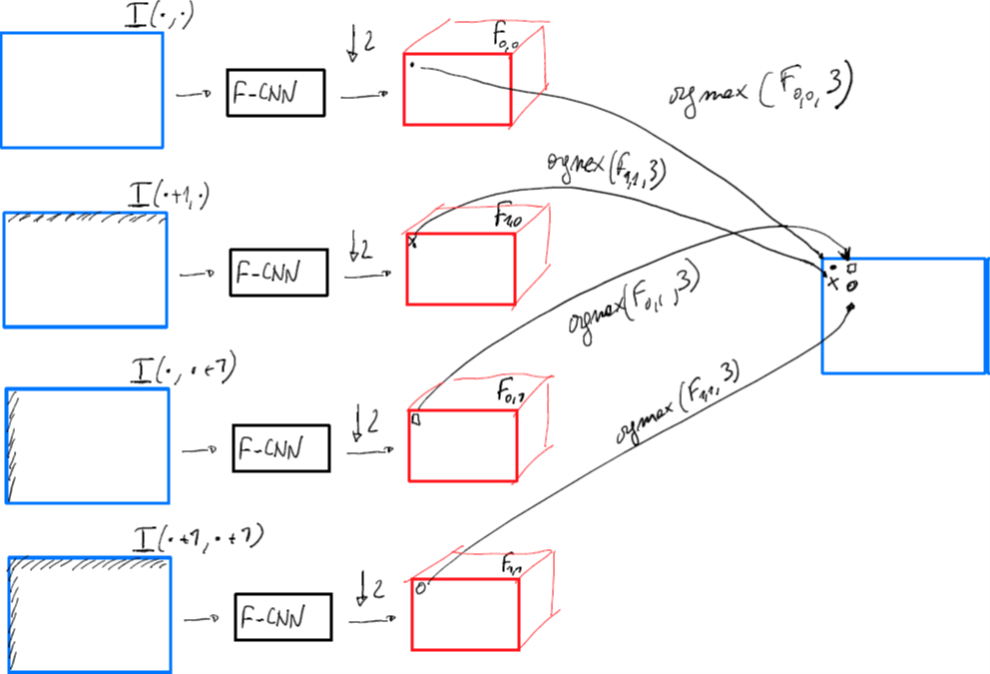 I(·,·)
F-CNN
↓2
F0,0
argmax (F0,0, 3)
I(·+1,·)
F-CNN
↓2
F1,0
argmax(F1,1, 3)
I(·,·+1)
F-CNN
↓2
F0,1
argmax(F0,1, 3)
I(·+1,·+1)
F-CNN
↓2
F1,1
argmax(F1,1, 3)